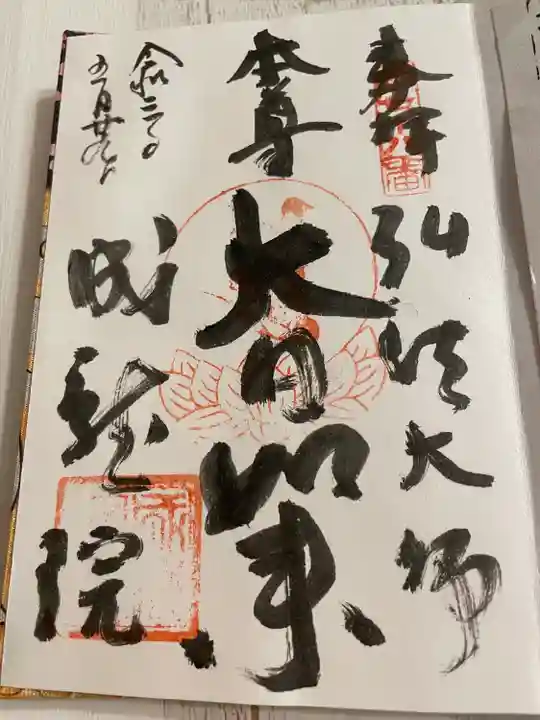 奉拝
弘法大師
本尊
大日如来
成就院
令和三年
五月廿九日